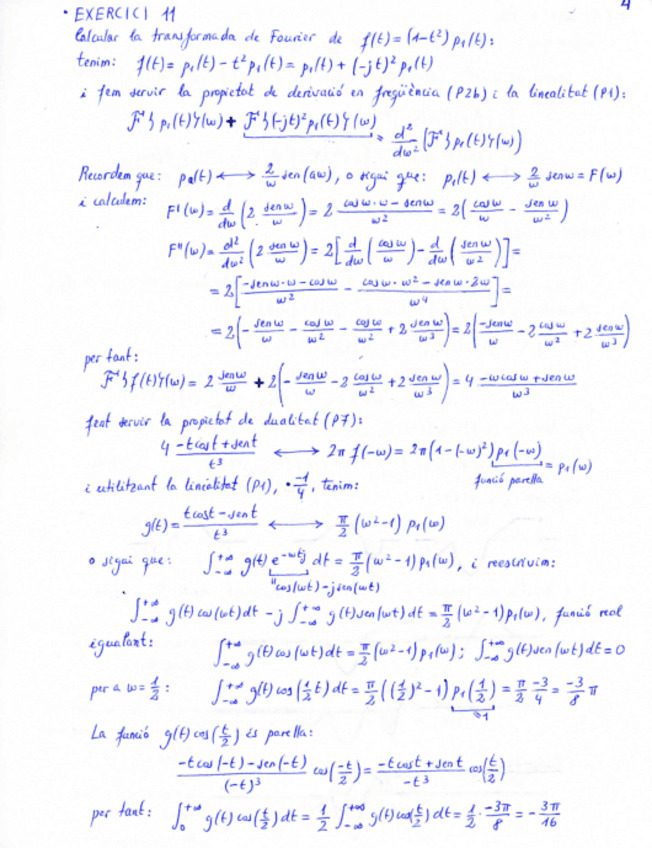 4
• EXERCICI 11
Calcular la transformada de Fourier de f(t) = (1-t²) p₁(t):
tenim: f(t) = p₁(t) - t² p₁(t) = p₁(t) + (-jt)² p₁(t)
i fem servir la propietat de derivació en freqüència (P2b) i la linealitat (P1):
F{p₁(t)}(w) + F{(-jt)² p₁(t)}(w) = d²/dw² (F{p₁(t)}(w))
Recordem que: pa(t) ⟷ 2/w sen(aw), o sigui que: p₁(t) ⟷ 2/w senw = F(w)
i calculem: F'(w) = d/dw (2 senw/w) = 2 (cosw·w - senw)/w² = 2(cosw/w - senw/w²)
F''(w) = d²/dw² (2 senw/w) = 2[d/dw (cosw/w) - d/dw (senw/w²)] =
= 2[(-senw·w - cosw)/w² - (cosw·w² - senw·2w)/w⁴] =
= 2(-senw/w - cosw/w² - cosw/w² + 2 senw/w³) = 2(-senw/w - 2 cosw/w² + 2 senw/w³)
per tant:
F{f(t)}(w) = 2 senw/w + 2(-senw/w - 2 cosw/w² + 2 senw/w³) = 4 (-wcosw + senw)/w³
fent servir la propietat de dualitat (P7):
4 (-tcost + sent)/t³ ⟷ 2π f(-w) = 2π(1-(-w)²) p₁(-w) = p₁(w)
funció parella
i utilitzant la linealitat (P1), · -1/4, tenim:
g(t) = (tcost - sent)/t³ ⟷ π/2 (w²-1) p₁(w)
o sigui que: ∫₋∞^+∞ g(t) e^-wtj dt = π/2 (w²-1) p₁(w), i reescrivim:
" cos(wt) - jsen(wt)
∫₋∞^+∞ g(t) cos(wt) dt - j ∫₋∞^+∞ g(t) sen(wt) dt = π/2 (w²-1) p₁(w), funció real
igualant: ∫₋∞^+∞ g(t) cos(wt) dt = π/2 (w²-1) p₁(w); ∫₋∞^+∞ g(t) sen(wt) dt = 0
per a w = 1/2: ∫₋∞^+∞ g(t) cos(1/2 t) dt = π/2 ((1/2)² - 1) p₁(1/2) = π/2 · -3/4 = -3/8 π
=1
La funció g(t) cos(t/2) és parella:
(-t cos(-t) - sen(-t))/(-t)³ cos(-t/2) = (-tcost + sent)/-t³ cos(t/2)
per tant: ∫₀^+∞ g(t) cos(t/2) dt = 1/2 ∫₋∞^+∞ g(t) cos(t/2) dt = 1/2 · -3π/8 = -3π/16